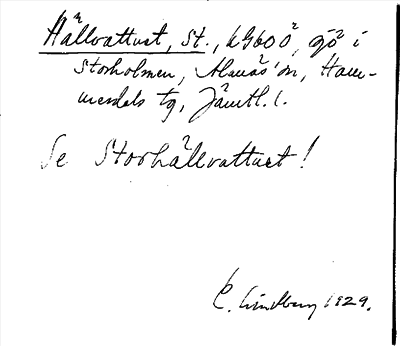 Hällvattnet, St., kG600², gö² i
Storholmen, Alanäs' ön, Ham-
merdals tg, Jämtl. l.
Se Storhällvattnet!
C. Lindberg 1929.